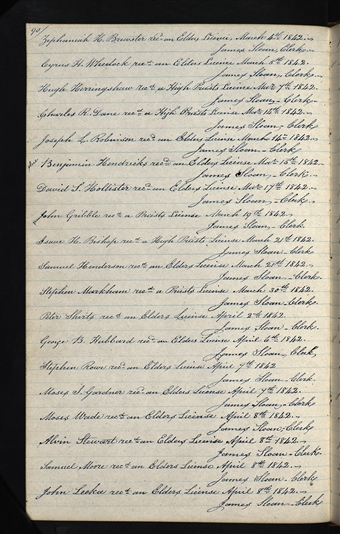 90/
Zephaniah H. Brewster recd an Elders License, March 4th 1842.
James Sloan, Clerk
Cyrus H. Wheelock rect an Elders License March 8th 1842.
James Sloan, Clerk.
Hugh Herringshaw rect a High Priests License Mar 7th 1842.
James Sloan, Clerk
Charles R. Dana rect a High Priests License Mar 14th 1842.
James Sloan, Clerk
Joseph L. Robinson recd an Elders License March 14th 1842.
James Sloan, Clerk
Benjamin Hendricks recd an Elders License Mar 15th 1842.
James Sloan, Clerk.
David S. Hollister rect an Elders License Mar 17th 1842.
James Sloan, Clerk.
John Gribble rect a Priests License March 19th 1842.
James Sloan, Clerk
Isaac H. Bishop rect a High Priests License March 21st 1842.
James Sloan Clerk
Samuel Henderson rect an Elders License March 1842.
James Sloan, Clerk
Stephen Markham rect a Priests License March 30th 1842.
James Sloan, Clerk
Peter Shirts rect an Elders License April 2d 1842
James Sloan, Clerk.
George B. Hubbard recd an Elders License April 6th 1842.
James Sloan, Clerk,
Stephen Rowe recd an Elders License April 7th 1842
James Sloan, Clerk.
Moses S. Gardner recd an Elders License April 7th 1842.
James Sloan, Clerk
Moses Wade rect an Elders License April 8th 1842.
James Sloan, Clerk
Alvin Stewart rect an Elders License April 8th 1842.
James Sloan, Clerk
Samuel Moore rect an Elders License April 8th 1842.
James Sloan, Clerk
John rect an Elders License April 8th 1842.
James Sloan, Clerk